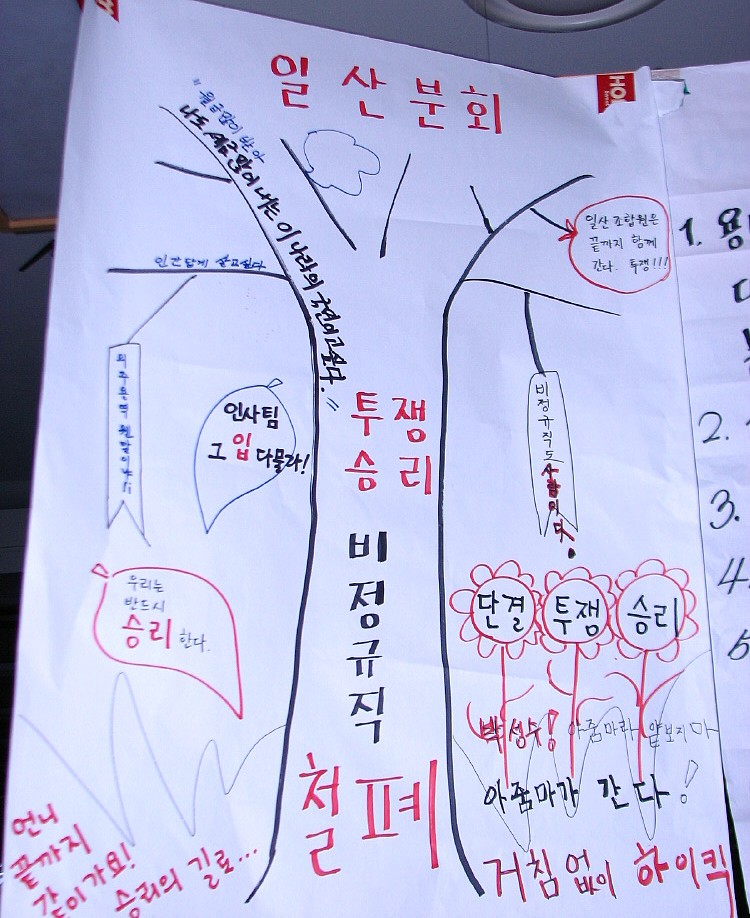 일산분회
"월급많이 받아
나도 세금많이 내는 이 나라의 국민이고싶다."
인간답게 살고싶다
일산 조합원은
끝까지 함께
간다. 투쟁!!!
외주용역 웬말이냐!!
인사팀
그 입 다물라!
비정규직도 사람이다.
투쟁
승리
비정규직
철폐
우리는
반드시
승리 한다.
단결 투쟁 승리
박성수! 아줌마라 얕보지마
아줌마가 간다!
거침없이 하이킥
언니
끝까지
같이가요!
승리의 길로...
1. 용
2.
3.
4.
5